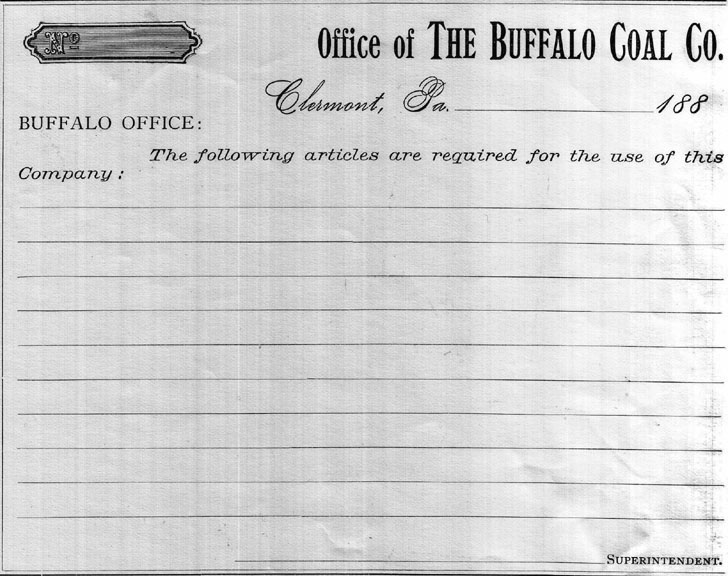 Nº
Office of THE BUFFALO COAL CO.
Clermont, Pa. 188
BUFFALO OFFICE:
The following articles are required for the use of this
Company:
SUPERINTENDENT.